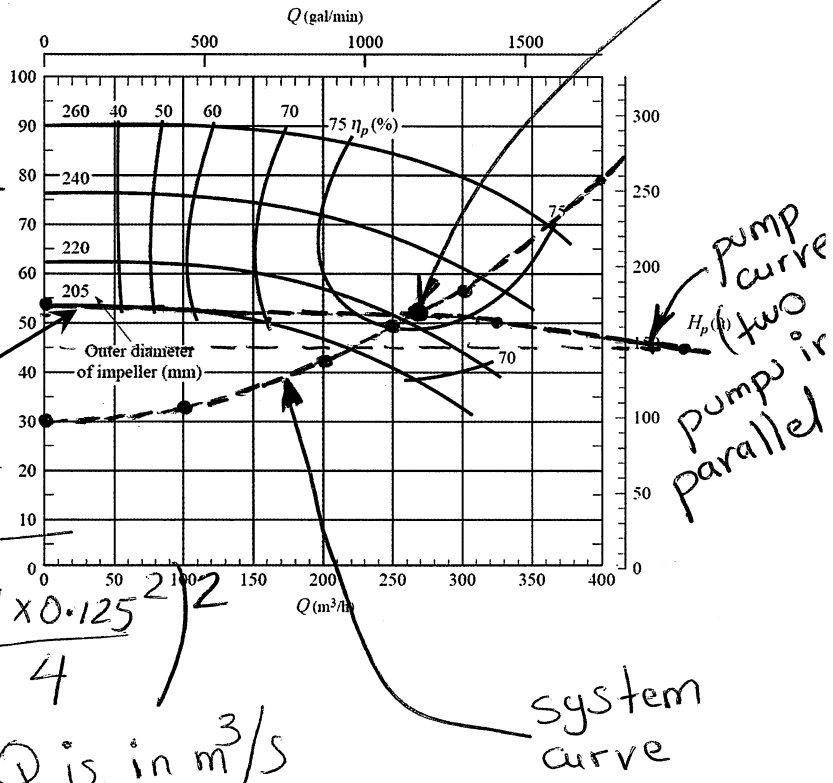 Q (gal/min)
0 500 1000 1500
100
90
80
70
60
50
40
30
20
10
0
260 40 50 60 70 75 ηp (%)
240
220
205
75
70
Outer diameter
of impeller (mm)
300
250
200
100
50
0
0 50 100 150 200 250 300 350 400
Q (m³/h)
pump
curve
(two
pumps in
parallel
×0.125²)2
4
Q is in m³/s
system
curve